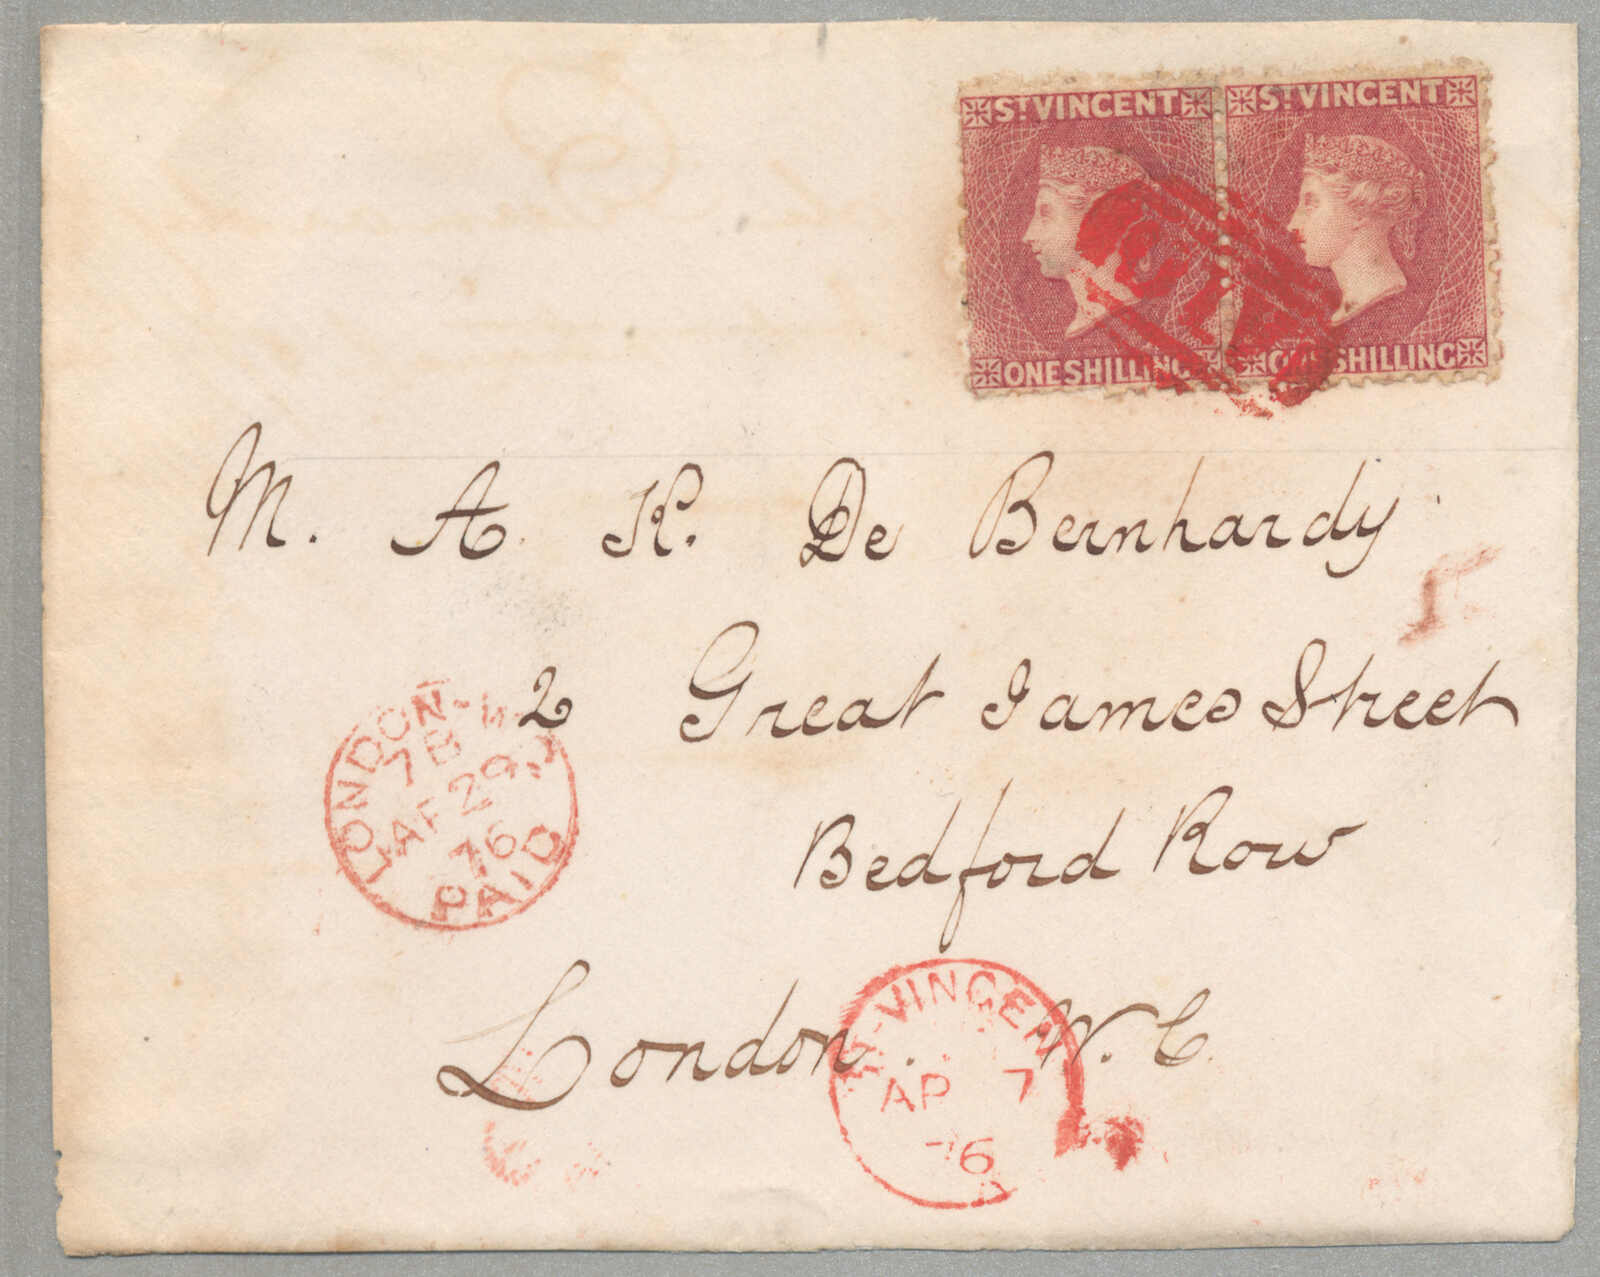 ST VINCENT ST VINCENT
ONE SHILLING ONE SHILLING
M. A. K. De Bernhardy
2 Great James Street
Bedford Row
London. W. C.
LONDON-W
7B
AP 29
76
PAID
ST-VINCENT
AP 7
76
A